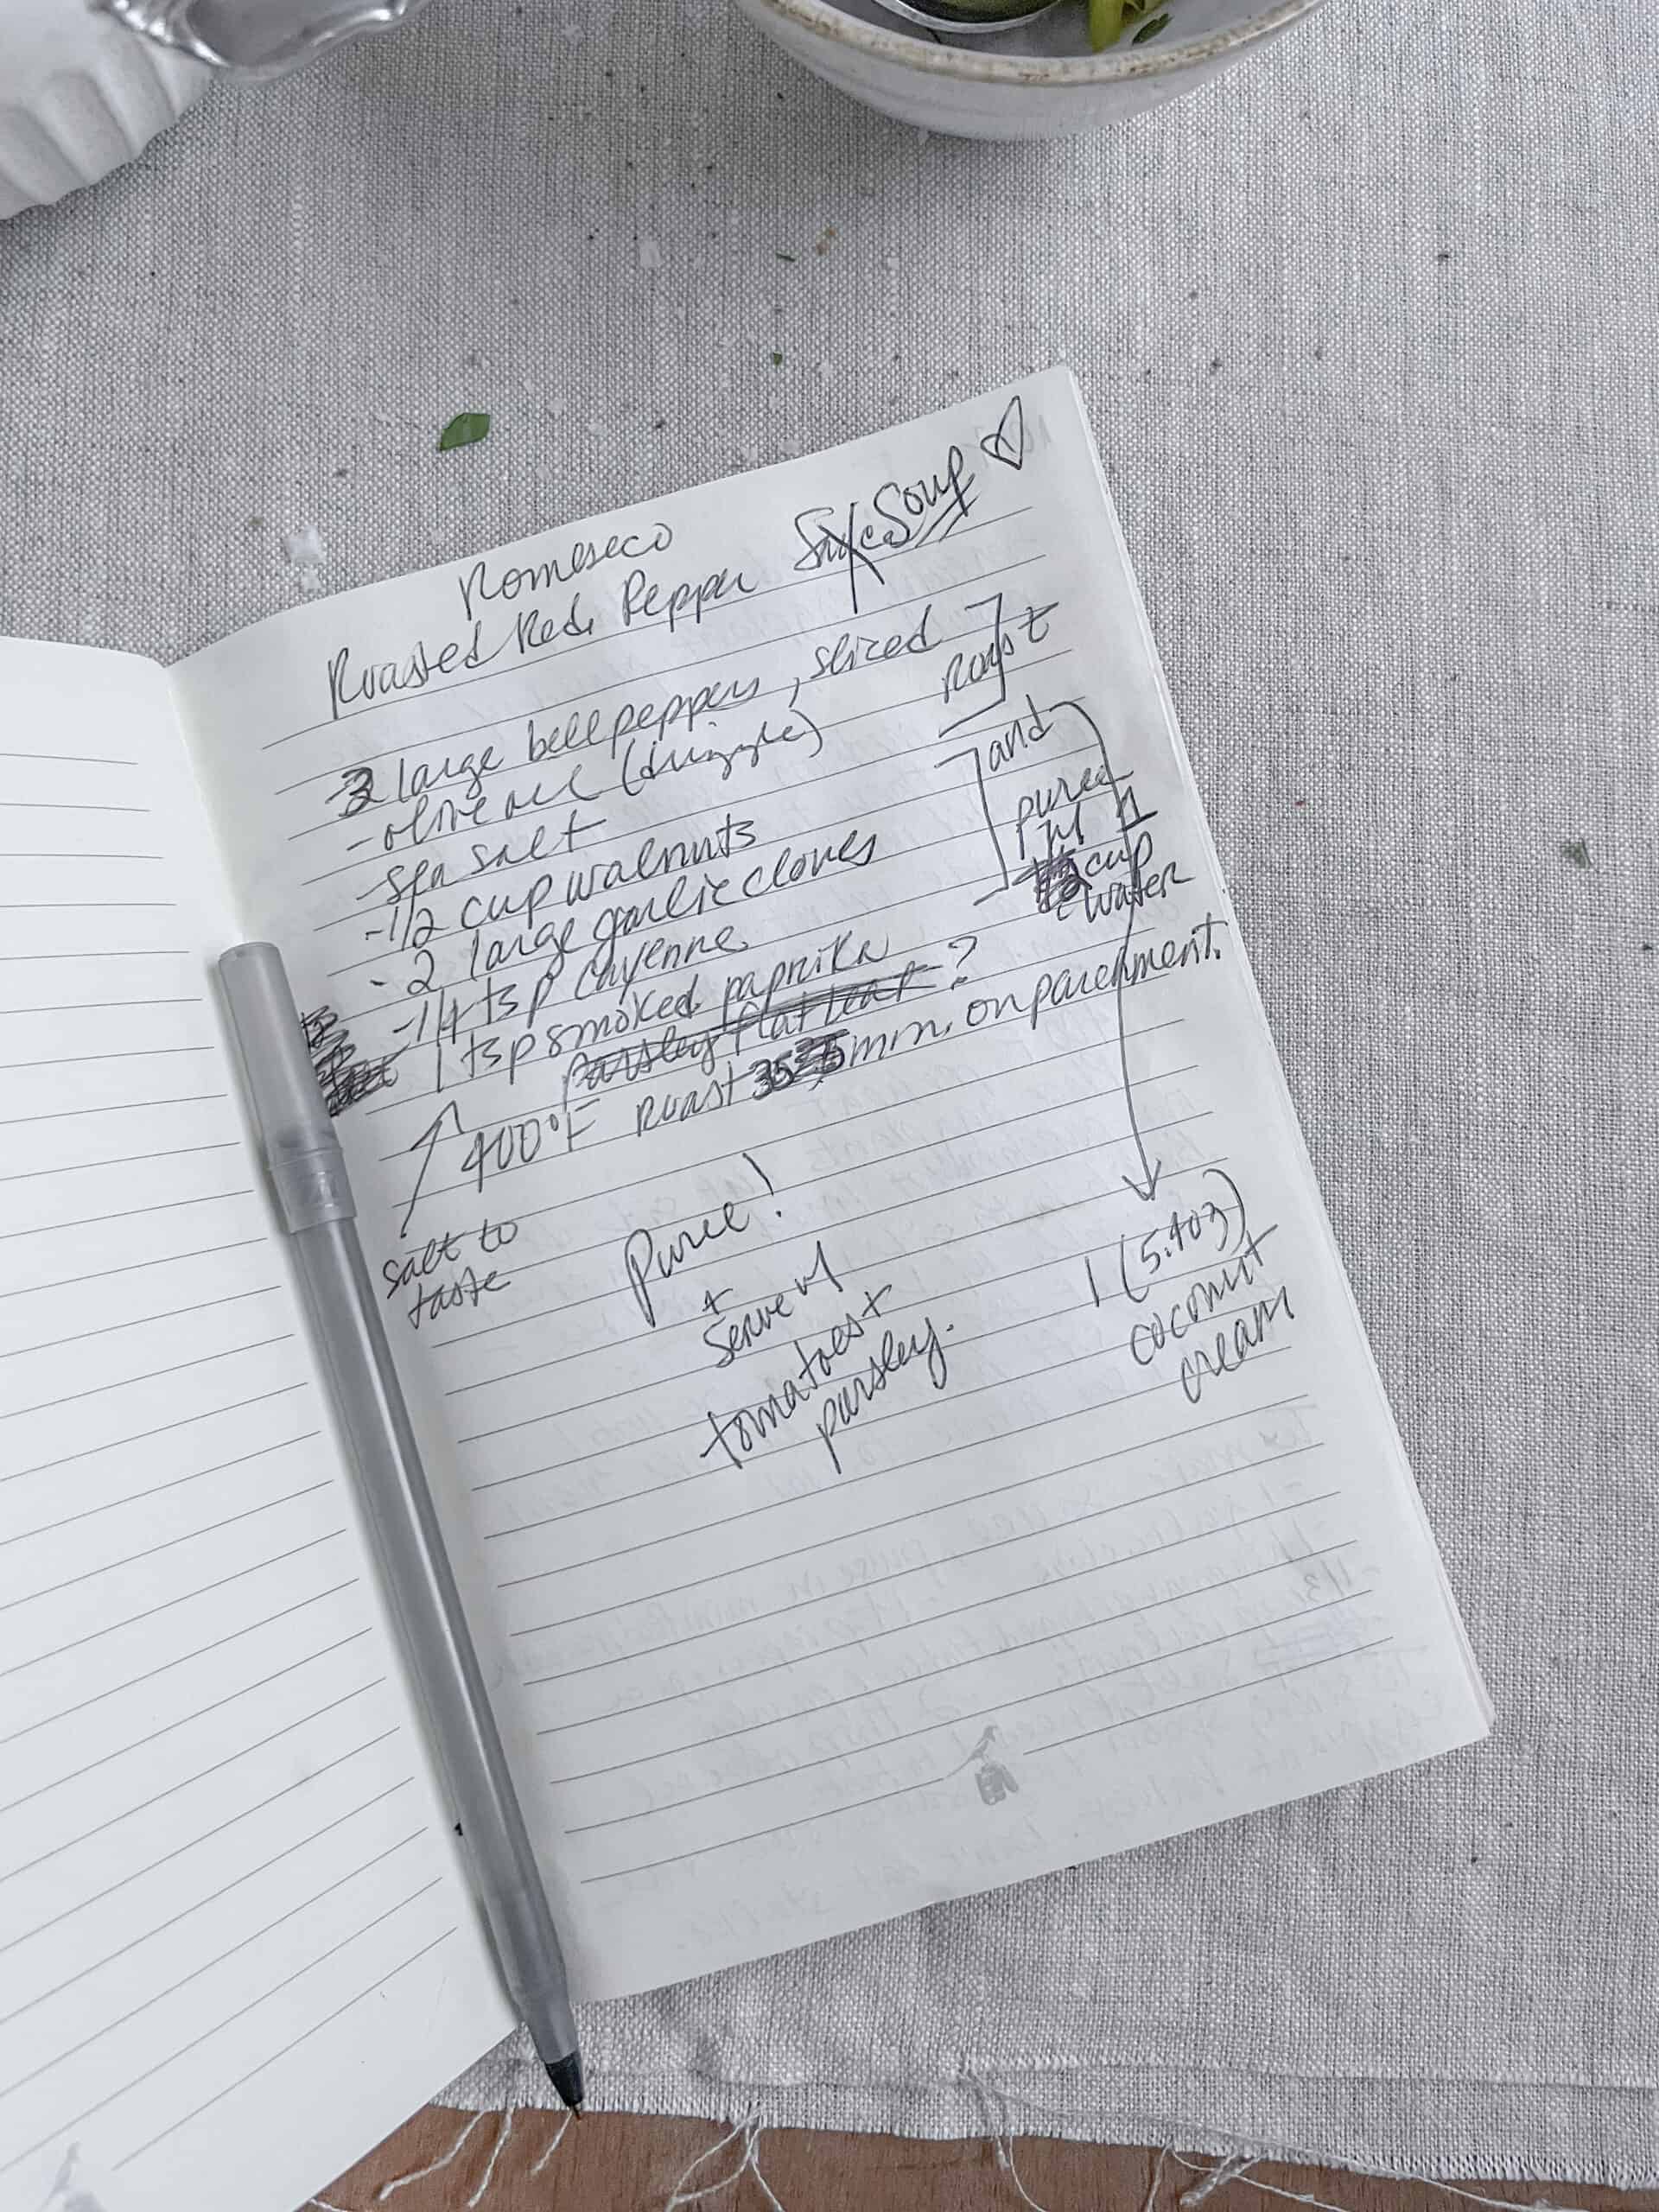 Romeseco
Roasted Red Pepper Sauce Soup
3 large bell peppers, sliced
- olive oil (drizzle)
- sea salt
- 1/2 cup walnuts
- 2 large garlic cloves
- 1/4 tsp cayenne
1 tsp smoked paprika
parsley flat leaf ?
400°F roast 35 min. on parchment.
roast
and
puree
w/ 1
cup
water
salt to
taste
Puree!
+
serve w/
tomatoes +
parsley.
1 (5.4oz)
coconut
cream